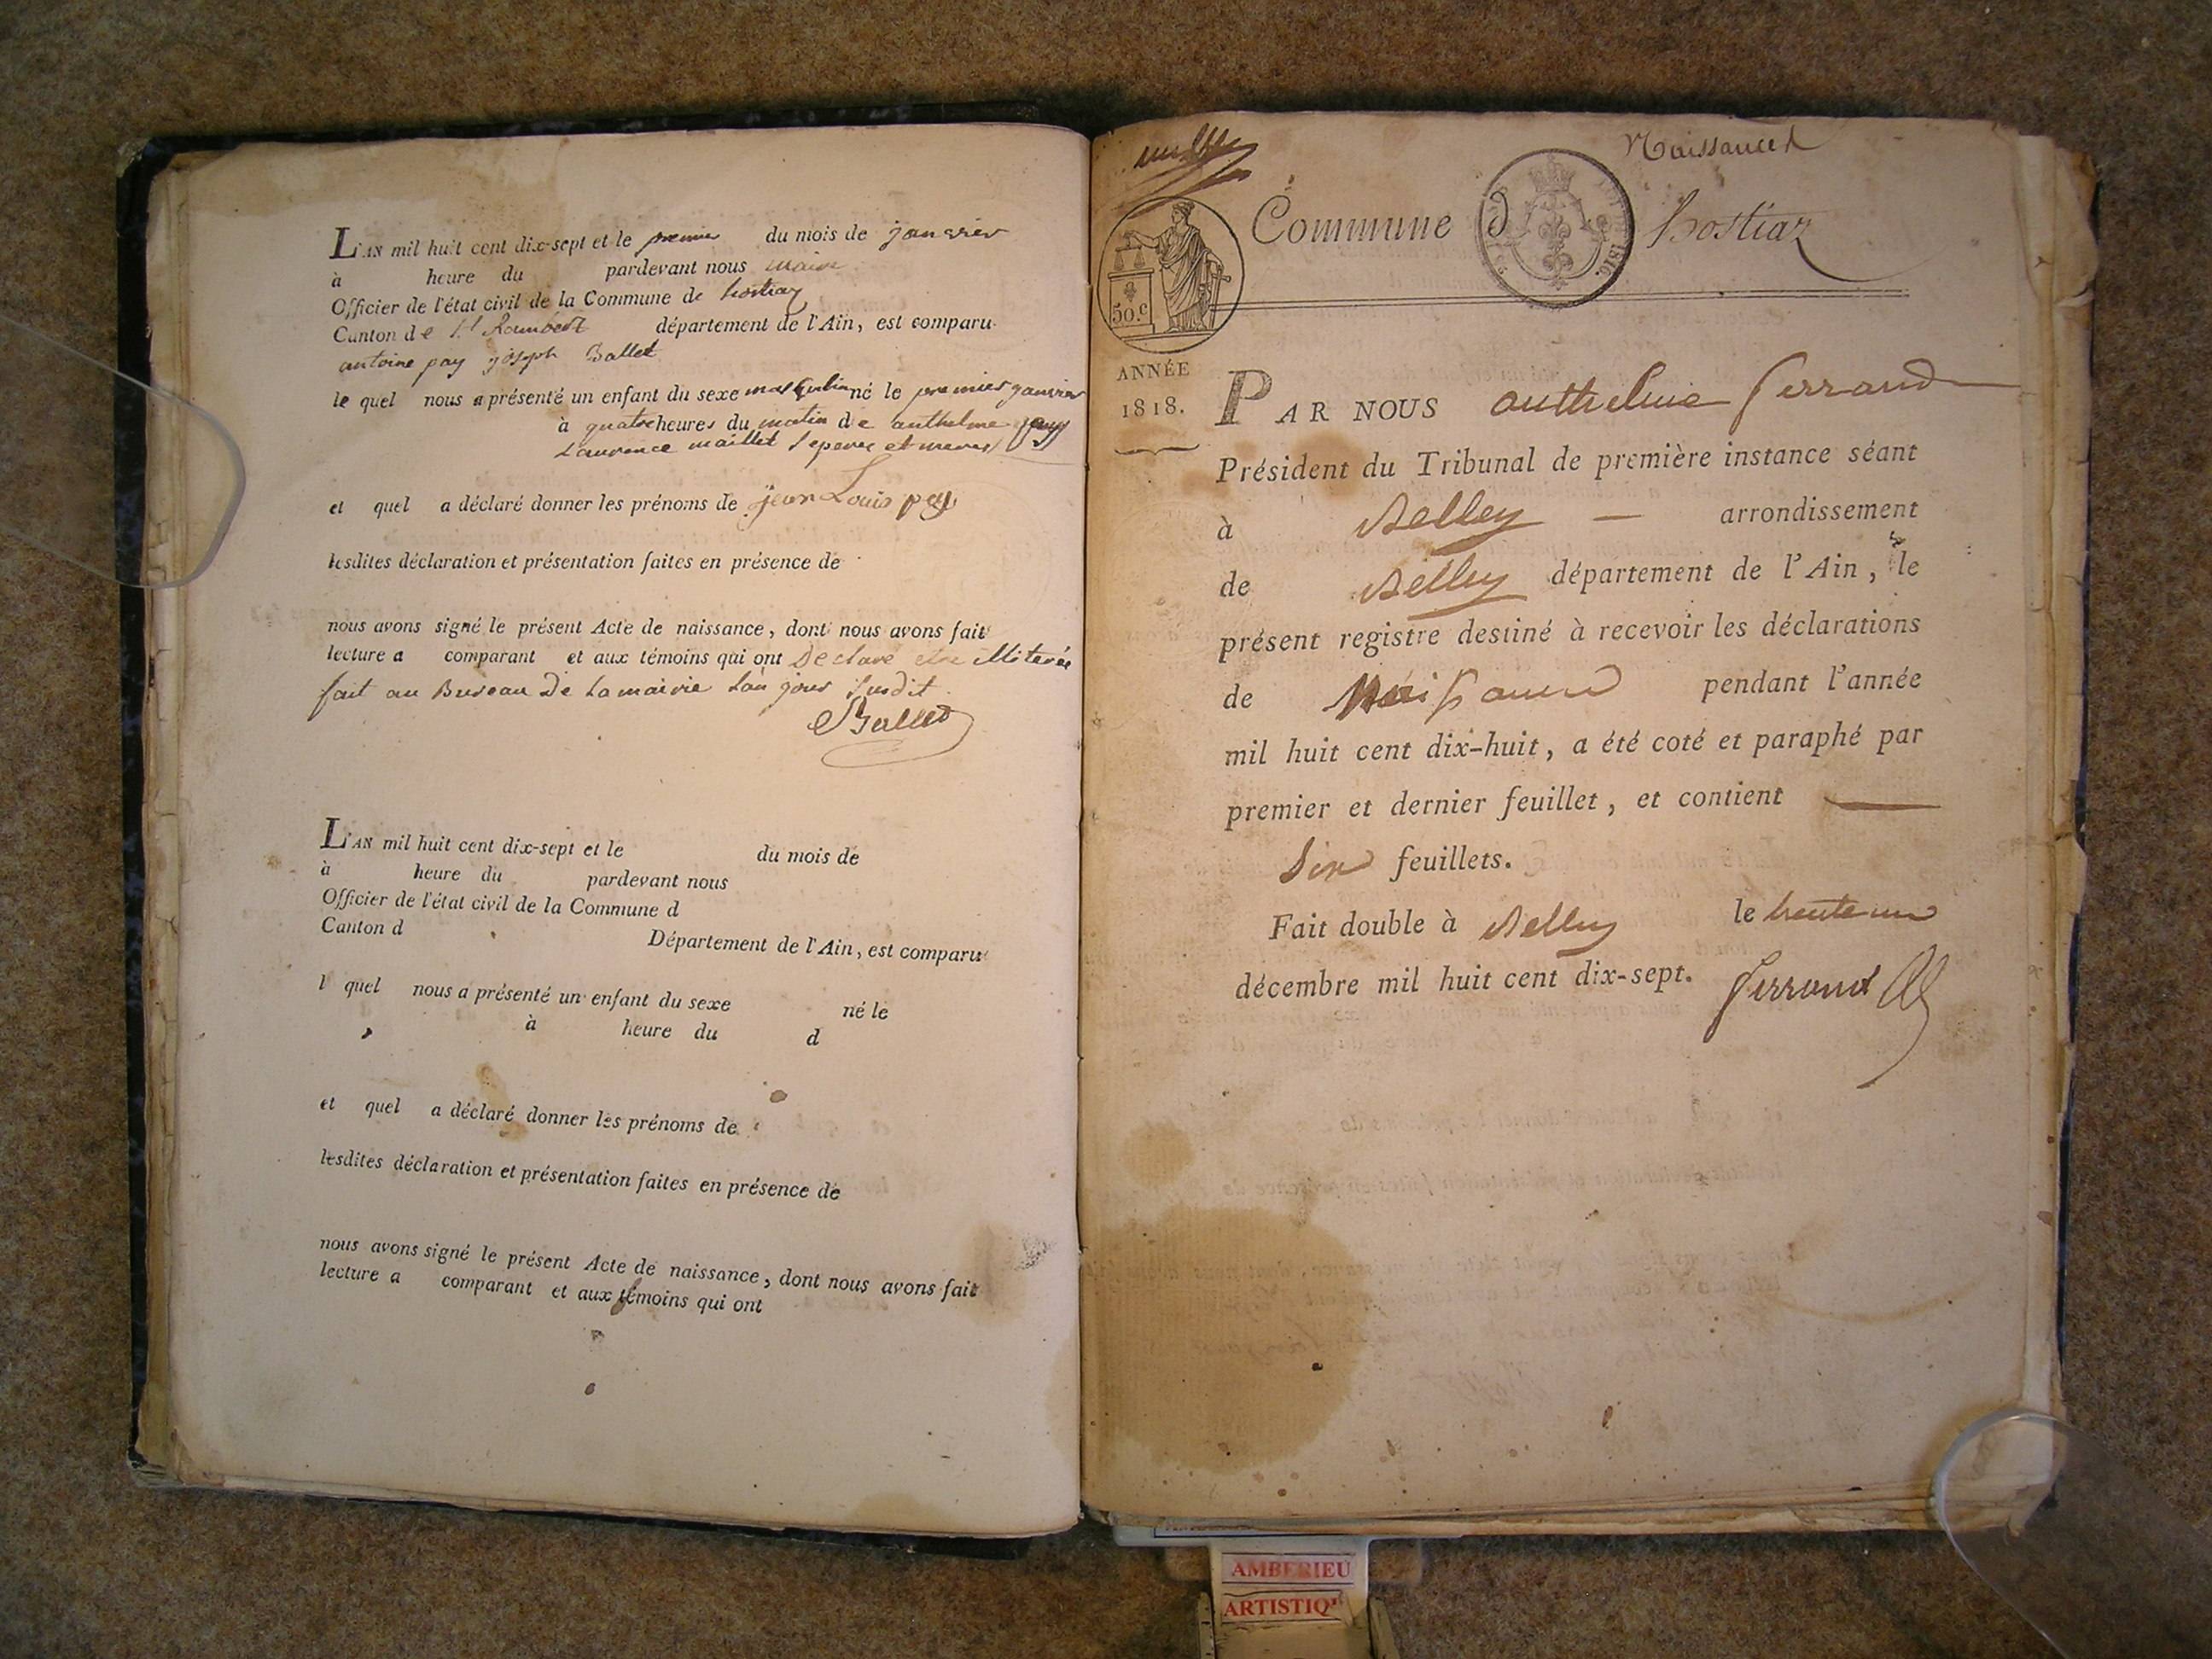 L'AN mil huit cent dix-sept et le premier du mois de janvier
à heure du pardevant nous maire
Officier de l'état civil de la Commune de hostiaz
Canton de St Rambert département de l'Ain, est comparu
antoine pay joseph Ballet
le quel nous a présenté un enfant du sexe masculin né le premier janvier
à quatre heures du matin de anthelme pay
Laurence maillet
et quel a déclaré donner les prénoms de jean Louis pay
lesdites déclaration et présentation faites en présence de
nous avons signé le présent Acte de naissance, dont nous avons fait
lecture a comparant et aux témoins qui ont Declaré etre
fait au Bureau De La mairie Lan jour susdit
Ballet
L'AN mil huit cent dix-sept et le du mois de
à heure du pardevant nous
Officier de l'état civil de la Commune d
Canton d Département de l'Ain, est comparu
l quel nous a présenté un enfant du sexe né le
à heure du d
et quel a déclaré donner les prénoms de
lesdites déclaration et présentation faites en présence de
nous avons signé le présent Acte de naissance, dont nous avons fait
lecture a comparant et aux témoins qui ont
Naissances
Commune d hostiaz
50.c
ANNÉE
1818.
PAR NOUS anthelme ferrand
Président du Tribunal de première instance séant
à Belley arrondissement
de Belley département de l'Ain, le
présent registre destiné à recevoir les déclarations
de Naissance pendant l'année
mil huit cent dix-huit, a été coté et paraphé par
premier et dernier feuillet, et contient
Six feuillets.
Fait double à Belley le trente un
décembre mil huit cent dix-sept. ferrand
AMBERIEU
ARTISTIQ